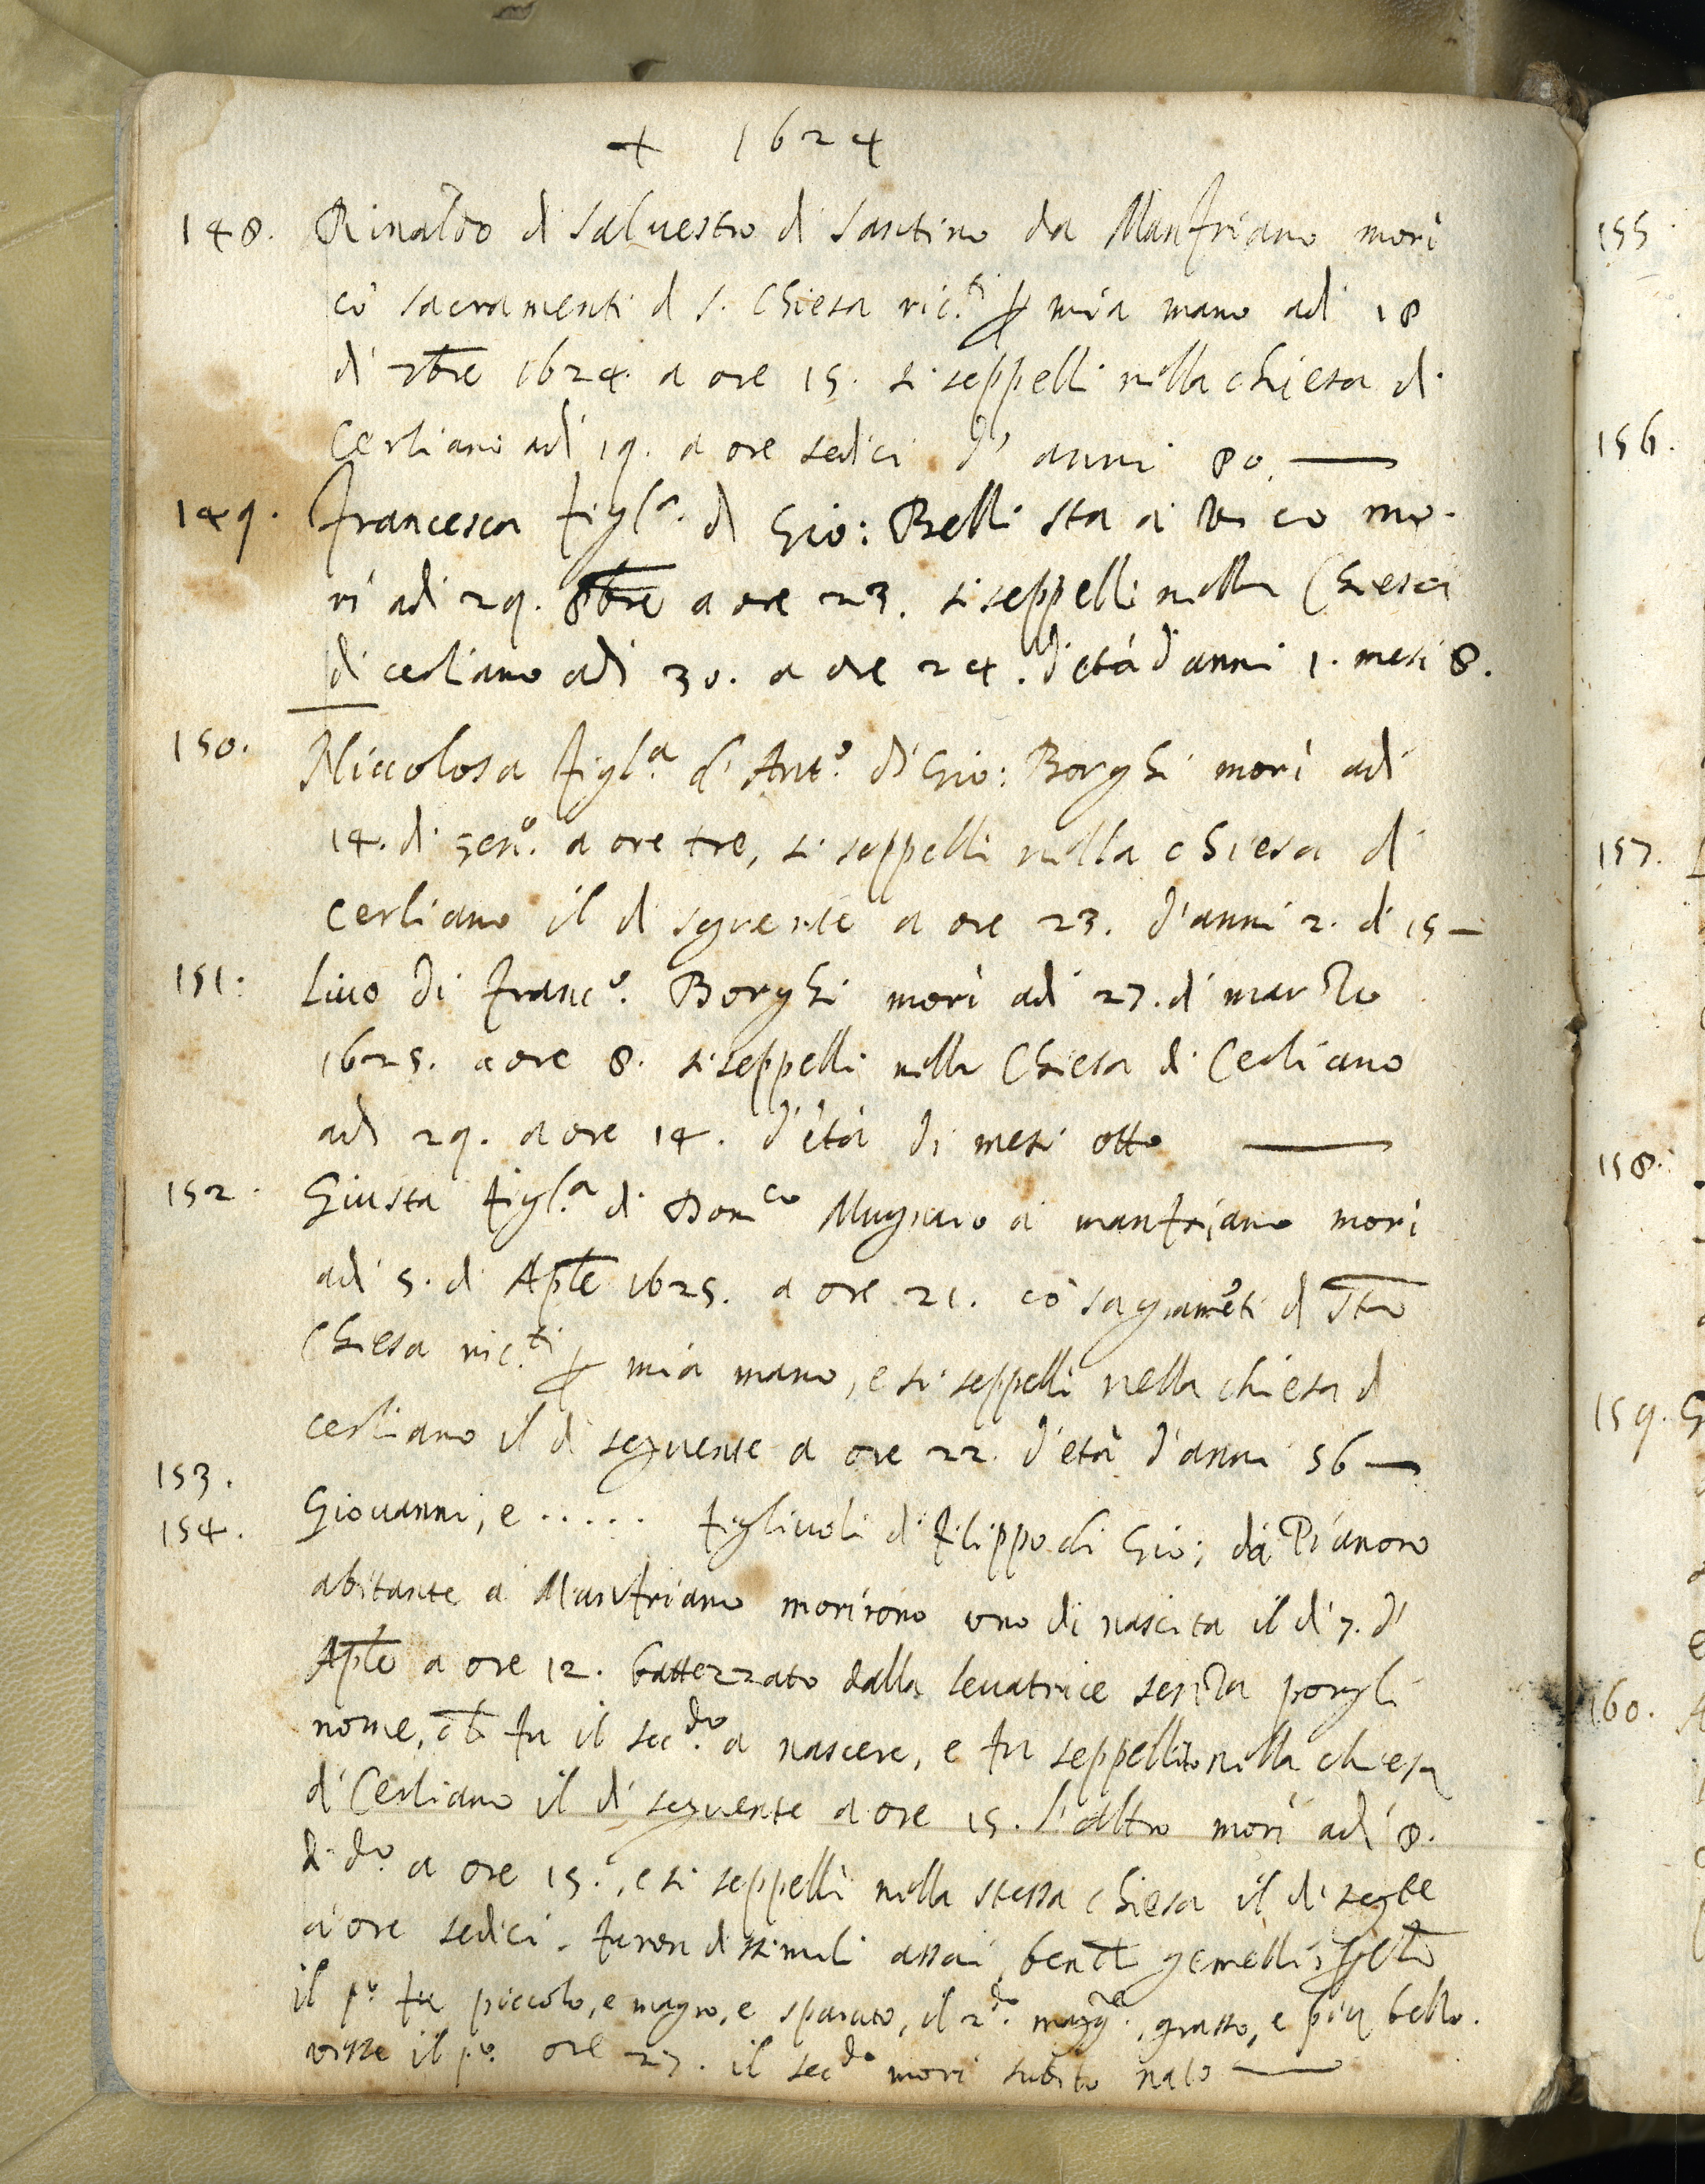 + 1624
148. Rinaldo di Salvestro di Santino da Manfriano morì
cō sacramenti d S. Chiesa ric.ti p mia mano adi 18
di 7bre 1624. a ore 15. si seppellì nella chiesa di
Cerliano adi 19. a ore sedici d' anni 80.
149. Francesca figl.a di Gio: Belli sta a Vico mo-
rì adi 29. 8bre a ore 23. si seppellì nella Chiesa
di cerliano adi 30. a ore 24. d'età d'anni 1. mesi 8.
150. Niccolosa figl.a d' Ant.o di Gio: Borghi morì adi
14. di gen.o a ore tre, si seppellì nella chiesa di
Cerliano il dì seguente a ore 23. d'anni 2. dì 15
151. Livo di Franc.o Borghi morì adi 27. di marzo
1625. a ore 8. si seppellì nella Chiesa di Cerliano
adi 29. a ore 14. d'età di mesi otto
152. Giusta figl.a di Dom.co Mugnaio a manfriano morì
adi 5. di Aple 1625. a ore 21. cō sagramēti d Sta
Chiesa ric.ti p mia mano, e si seppellì nella chiesa d
cerliano il dì seguente a ore 22. d'età d'anni 56
153.
154. Giovanni, e ..... figliuoli di Filippo di Gio: da Pianoro
abitante a Manfriano morirono uno di nascita il dì 7. d'
Aple a ore 12. battezzato dalla levatrice senza porgli
nome, ch fu il sec.do a nascere, e fu seppellito nella chiesa
di Cerliano il dì seguente a ore 15. l'altro morì adì 8.
di d.o a ore 15., e si seppellì nella stessa chiesa il dì segte
a ore sedici. furon dissimili assai, bench gemelli,
il p.o fu piccolo, e magro, e sparuto, il 2.do magg.re, grasso, e più bello.
visse il p.o ore 27. il sec.do morì subito nato
155
156.
157.
158.
159. G
160.